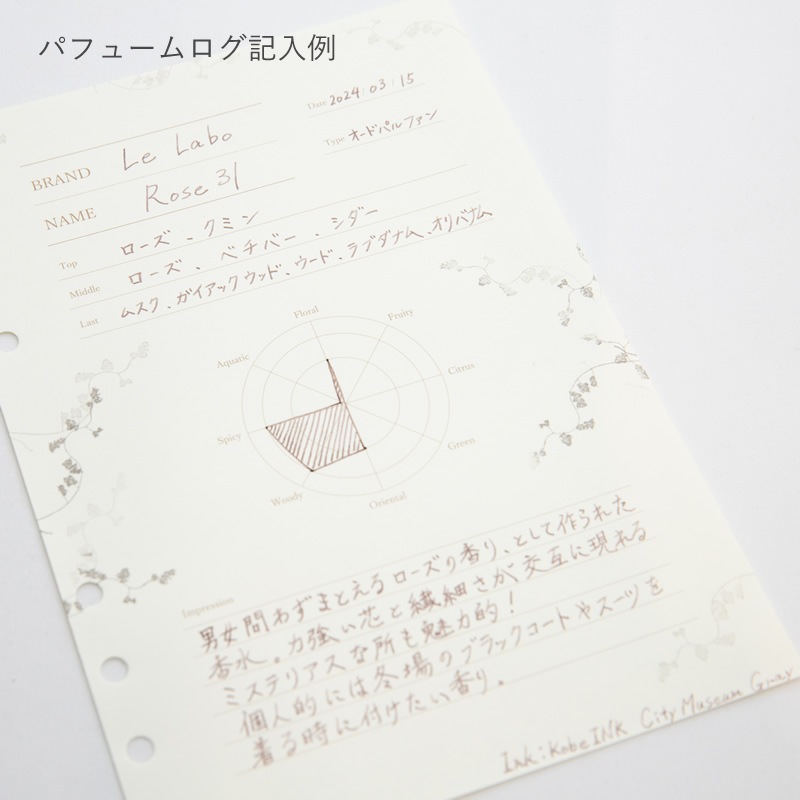 パフュームログ記入例
Date 2024/03/15
Type オードパルファン
BRAND Le Labo
NAME Rose 31
Top ローズ、クミン
Middle ローズ、ベチバー、シダー
Last ムスク、ガイアックウッド、ウード、ラブダナム、オリバナム
Floral
Fruity
Aquatic
Citrus
Spicy
Green
Woody
Oriental
Impression
男女問わずまとえるローズの香り、として作られた
香水。力強い花と繊細さが、交互に現れる
ミステリアスな所も魅力的!
個人的には冬場のブラックコートやスーツを
着る時に付けたい香り。
Ink:Kobe INK City Museum Gray